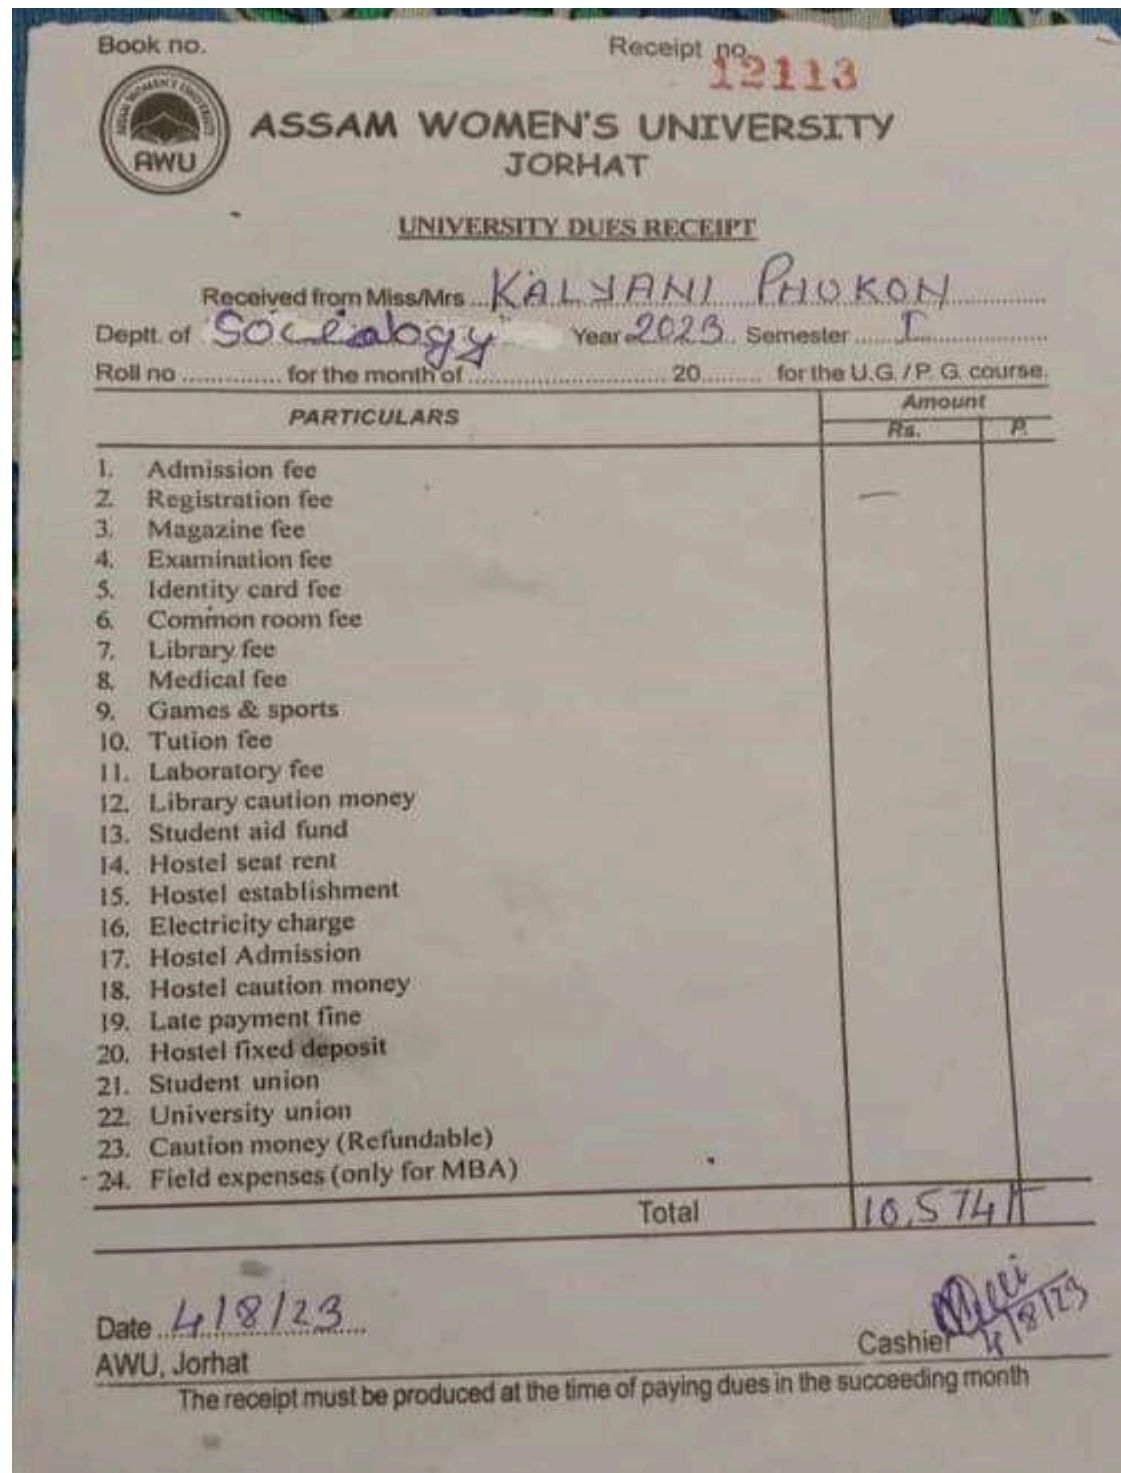 Book no. Receipt no. 12113
ASSAM WOMEN'S UNIVERSITY
AWU
ASSAM WOMEN'S UNIVERSITY
JORHAT
UNIVERSITY DUES RECEIPT
Received from Miss/Mrs ... KALYANI PHUKON
Deptt. of Sociology Year 2023 Semester I
Roll no .............. for the month of ............................ 20......... for the U.G. / P. G. course.
PARTICULARS Amount
Rs. P.
1. Admission fee
2. Registration fee —
3. Magazine fee
4. Examination fee
5. Identity card fee
6. Common room fee
7. Library fee
8. Medical fee
9. Games & sports
10. Tution fee
11. Laboratory fee
12. Library caution money
13. Student aid fund
14. Hostel seat rent
15. Hostel establishment
16. Electricity charge
17. Hostel Admission
18. Hostel caution money
19. Late payment fine
20. Hostel fixed deposit
21. Student union
22. University union
23. Caution money (Refundable)
24. Field expenses (only for MBA)
Total 10,574/-
Date 4/8/23
Cashier 4/8/23
AWU, Jorhat
The receipt must be produced at the time of paying dues in the succeeding month